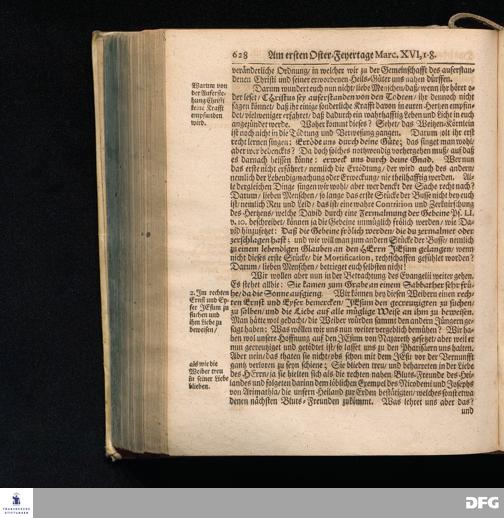 628 Am ersten Oster-Feyertage Marc. XVI, 1-8.
veränderliche Ordnung/ in welcher wir zu der Gemeinschafft des auferstan-
denen Christi und seiner erworbenen Heils-Güter uns nahen dürffen.
Warum von
der Auferste-
hung Christi
keine Krafft
empfunden
wird.
Darum wundert euch nun nicht/ liebe Menschen/ daß/ wenn ihr höret o-
der leset/ Christus sey auferstanden von den Todten/ ihr dennoch nicht
sagen könnet/ daß ihr einige sonderliche Krafft davon in euren Hertzen empfin-
det/ vielweniger erfahret/ daß dadurch ein wahrhafftig Leben und Licht in euch
angezündet werde. Woher kommt dieses? Sehet/ das Weitzen-Körnlein
ist noch nicht in die Tödtung und Verwesung gangen. Darum solt ihr erst
recht lernen singen: Ertödt uns durch deine Güte; das singet man wohl/
aber wer bedenckts? Da doch solches nothwendig vorhergehen muß/ auf daß
es darnach heissen könne: erweck uns durch deine Gnad. Wer nun
das erste nicht erfähret/ nemlich die Ertödtung/ der wird auch des andern/
nemlich der Lebendigmachung oder Erweckung/ nie theilhafftig werden. Al-
le dergleichen Dinge singen wir wohl/ aber wer denckt der Sache recht nach?
Darum/ lieben Menschen/ so lange das erste Stücke der Busse nicht bey euch
ist/ nemlich Reu und Leid/ das ist/ eine wahre Contrition und Zerknirschung
des Hertzens/ welche David durch eine Zermalmung der Gebeine Ps. LI.
v. 10. beschreibet/ können ja die Gebeine unmüglich frölich werden/ wie Da-
vid hinzusetzet: Daß die Gebeine frölich werden/ die du zermalmet oder
zerschlagen hast; und wie will man zum andern Stücke der Busse/ nemlich
zu einem lebendigen Glauben an den HErrn JEsum gelangen/ wenn
nicht dieses erste Stücke/ die Mortification, rechtschaffen gefühlet worden?
Darum/ lieben Menschen/ betrieget euch selbsten nicht!
Wir wollen aber nun in der Betrachtung des Evangelii weiter gehen.
2. Im rechten
Ernst und Ey-
fer JEsum zu
suchen und
ihm Liebe zu
beweisen/
Es stehet allhie: Sie kamen zum Grabe an einem Sabbather sehr frü-
he/ da die Sonne aufgieng. Wir können bey diesen Weibern einen rech-
ten Ernst und Eyfer bemercken/ JEsum den gecreutzigten zu suchen/
zu salben/ und die Liebe auf alle mügliche Weise an ihm zu beweisen.
Man hätte wol gedacht/ die Weiber würden sammt den andern Jüngern ge-
sagt haben: Was wollen wir uns nun weiter vergeblich bemühen? Wir ha-
ben wol unsere Hoffnung auf den JEsum von Nazareth gesetzet/ aber weil er
nun gecreutziget und getödtet ist/ so lasset uns zu den Pharisäern uns halten.
als wie die
Weiber treu
in seiner Liebe
blieben.
Aber nein/ das thaten sie nicht/ obs schon mit dem JEsu vor der Vernunfft
gantz verloren zu seyn schiene; Sie blieben treu/ und beharreten in der Liebe
des HErrn/ ja sie hielten sich als die rechten nahen Bluts-Freunde des Hei-
landes und folgeten darinn dem löblichen Exempel des Nicodemi und Josephs
von Arimathia/ die unsern Heiland zur Erden bestätigten/ welches sonst etwa
denen nächsten Bluts-Freunden zukömmt. Was lehret uns aber das?
und
FRANCKESCHE
STIFTUNGEN
DFG